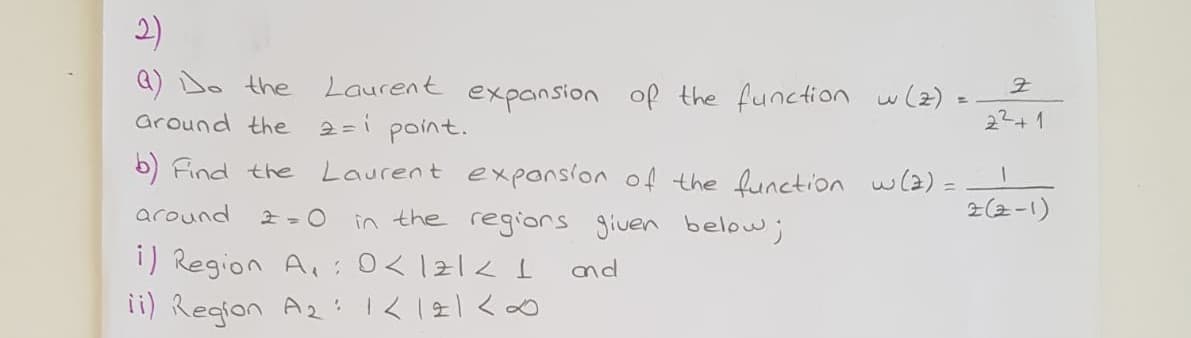 2)
a) Do the Laurent expansion of the function w(z) = z/(z²+1)
around the z=i point.
b) Find the Laurent expansion of the function w(z) = 1/(z(z-1))
around z=0 in the regions given below;
i) Region A₁ : 0<|z|<1 and
ii) Region A₂ : 1<|z|<∞